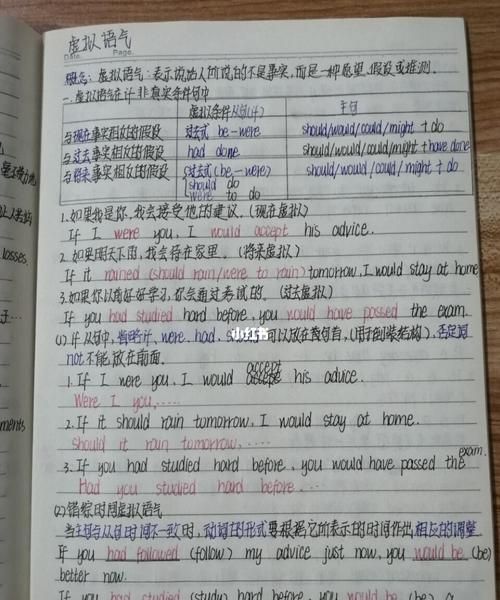 虚拟语气
Date. Page.
概念: 虚拟语气: 表示说话人所说的不是事实, 而是一种愿望、假设或推测.
一. 虚拟语气在if非真实条件句中
虚拟条件从句(if) 主句
与现在事实相反的假设 过去式 be-were should/would/could/might + do
与过去事实相反的假设 had done should/would/could/might + have done
与将来事实相反的假设 过去式(be, were) should/would/could/might + do
should do
were to do
1. 如果我是你, 我会接受他的建议. (现在虚拟)
If I were you, I would accept his advice.
2. 如果明天下雨, 我会待在家里. (将来虚拟)
If it rained (should rain/were to rain) tomorrow, I would stay at home
3. 如果你以前好好学习, 你会通过考试的. (过去虚拟)
If you had studied hard before, you would have passed the exam.
(1) if 从句中, 省略if, were, had, 可以放在句首, (用倒装结构), 否定词
小红书
not不能放在前面.
accept
1. If I were you, I would his advice.
Were I you, .....
2. If it should rain tomorrow, I would stay at home.
should it rain tomorrow, ....
exam.
3. If you had studied hard before, you would have passed the
Had you studied hard before. ...
(2) 错综时间虚拟语气
当主句与从句时间不一致时, 动词的形式要根据它所表示的时间作出相应的调整
If you had followed (follow) my advice just now, you would be (be)
better now.
If you had studied (study) hard before, you would be (be) a
losses
ments